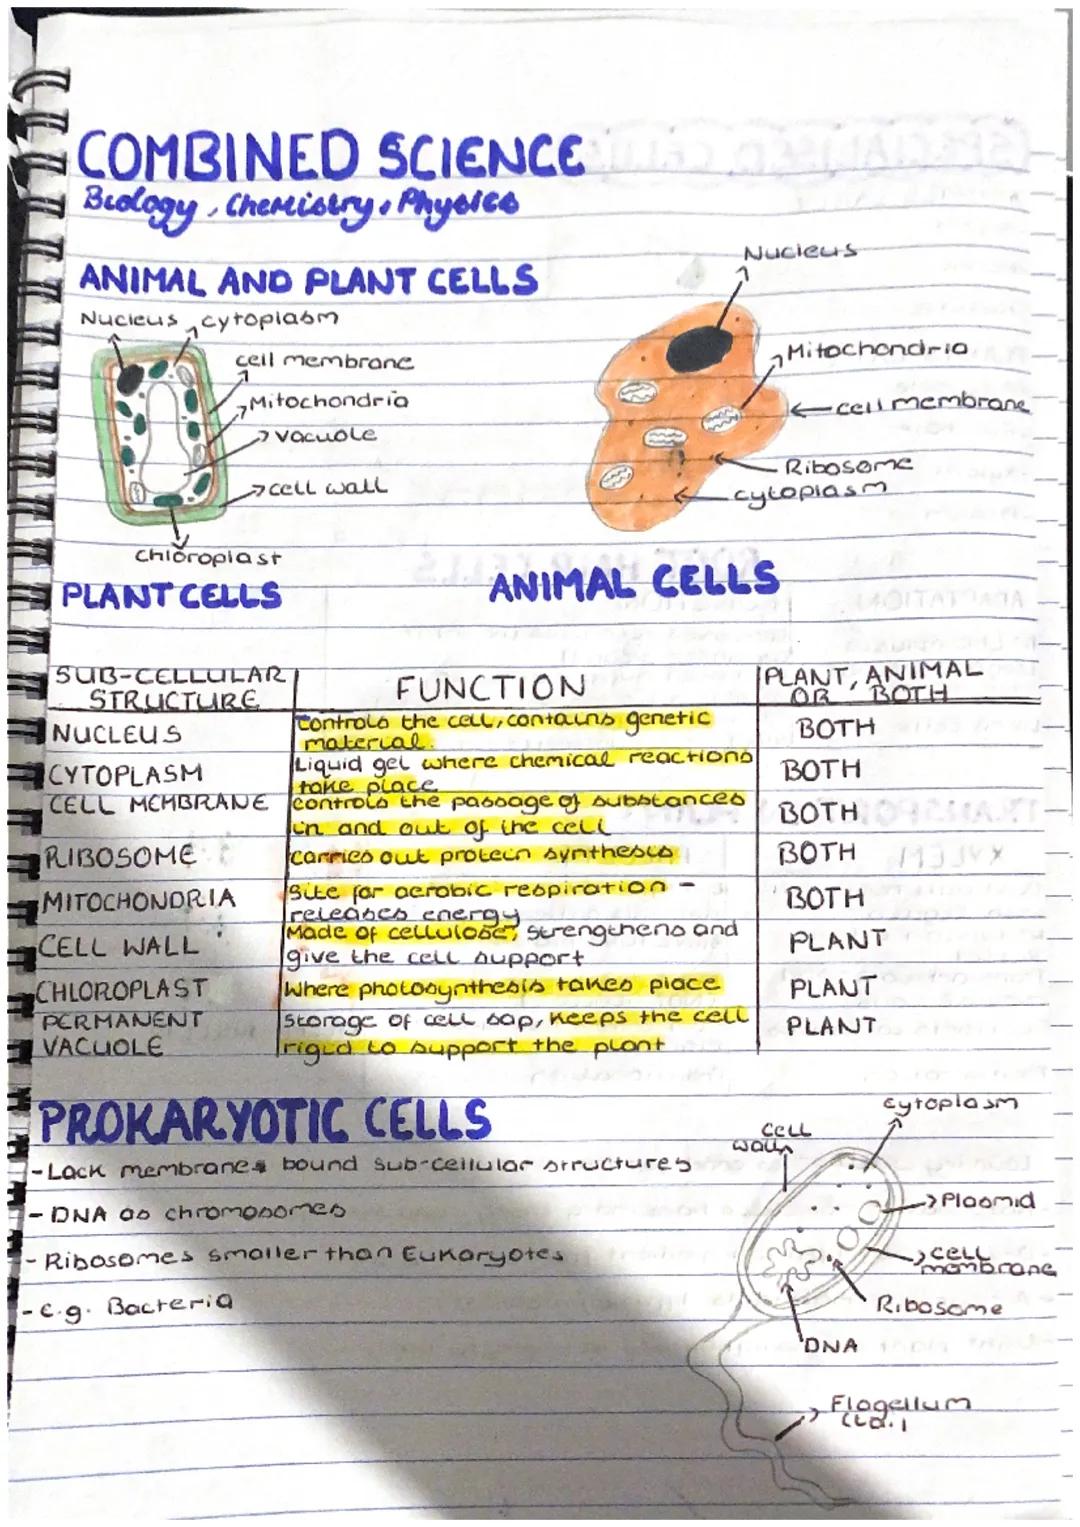 COMBINED SCIENCE
Biology, Chemistry, Physics
ANIMAL AND PLANT CELLS
Nucleus
cytoplasm
cell membrane
Mitochondria
vacuole
cell wall
chloroplast
PLANT CELLS
Nucleus
Mitochondria
cell membrane
Ribosome
cytoplasm
ANIMAL CELLS
SUB-CELLULAR STRUCTURE | FUNCTION | PLANT, ANIMAL OR BOTH
NUCLEUS | controls the cell, contains genetic material. | BOTH
CYTOPLASM | Liquid gel where chemical reactions take place | BOTH
CELL MEMBRANE | controls the passage of substances in and out of the cell | BOTH
RIBOSOME | carries out protein synthesis | BOTH
MITOCHONDRIA | Site for aerobic respiration - releases energy | BOTH
CELL WALL | Made of cellulose, strengthens and give the cell support | PLANT
CHLOROPLAST | Where photosynthesis takes place | PLANT
PERMANENT VACUOLE | Storage of cell sap, keeps the cell rigid to support the plant | PLANT
PROKARYOTIC CELLS
- Lack membranes bound sub-cellular structures
- DNA as chromosomes
- Ribosomes smaller than Eukaryotes
- e.g. Bacteria
cytoplasm
cell wall
Plasmid
cell membrane
Ribosome
DNA
Flagellum